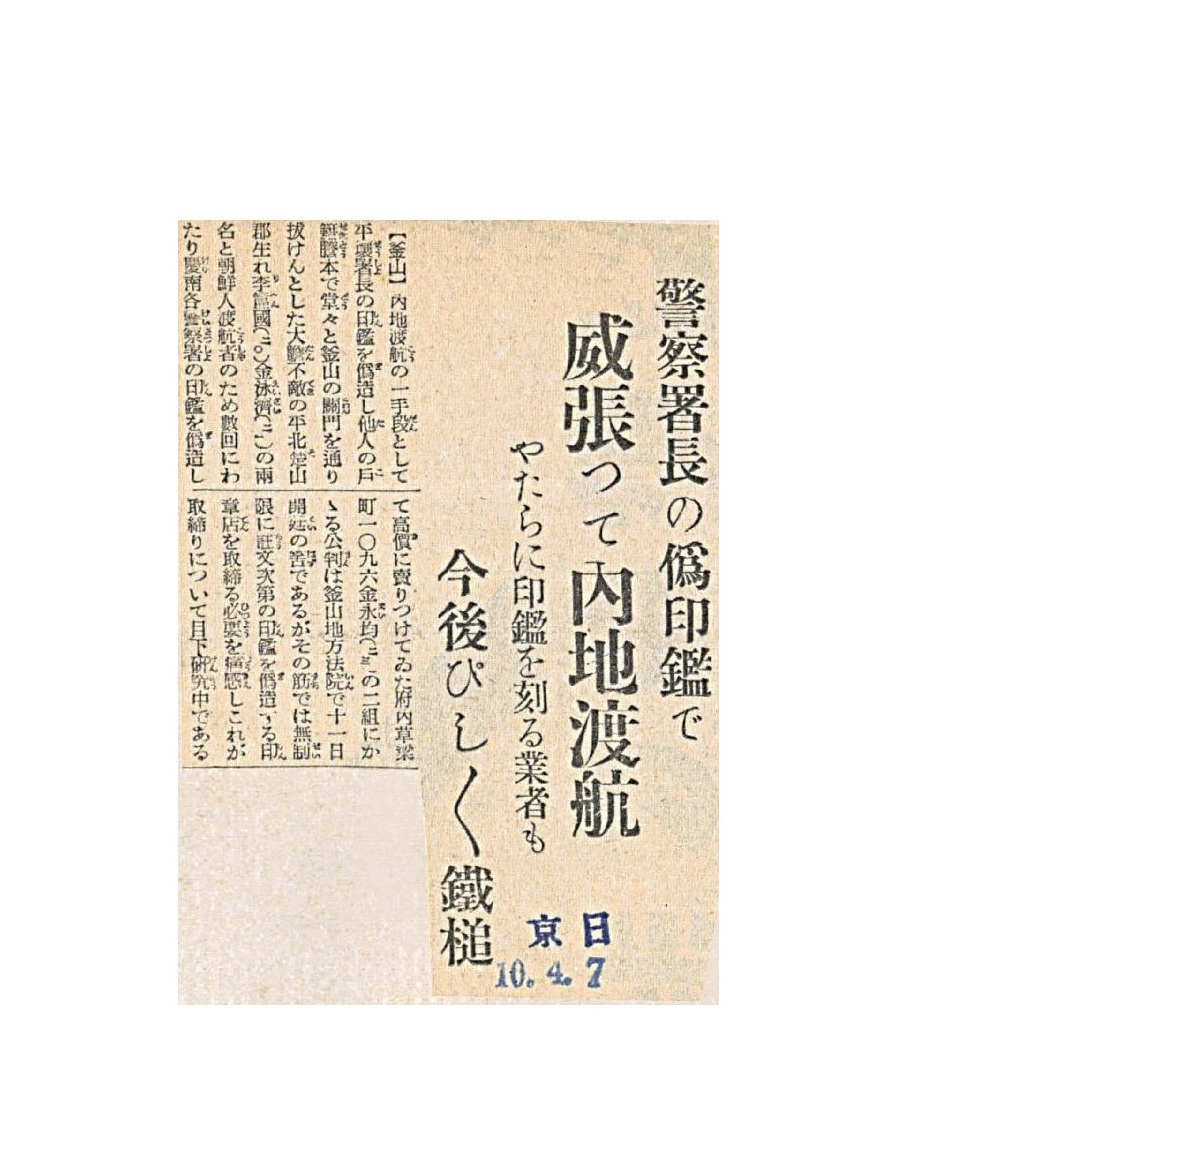 警察署長の僞印鑑で
威張つて內地渡航
やたらに印鑑を刻る業者も
今後ぴし〱鐵槌
【釜山】內地渡航の一手段として
平壤署長の印鑑を僞造し他人の戶
籍謄本で堂々と釜山の關門を通り
拔けんとした大膽不敵の平北楚山
郡生れ李富國(二〇)金泳濟(二一)の兩
名と朝鮮人渡航者のため數回にわ
たり慶南各警察署の印鑑を僞造し
て高價に賣りつけてゐた府內草梁
町一〇九六金永均(二三)の二組にか
ゝる公判は釜山地方法院で十一日
開廷の筈であるがその筋では無制
限に註文次第の印鑑を僞造する印
章店を取締る必要を痛感しこれが
取締りについて目下硏究中である
日京
10.4.7